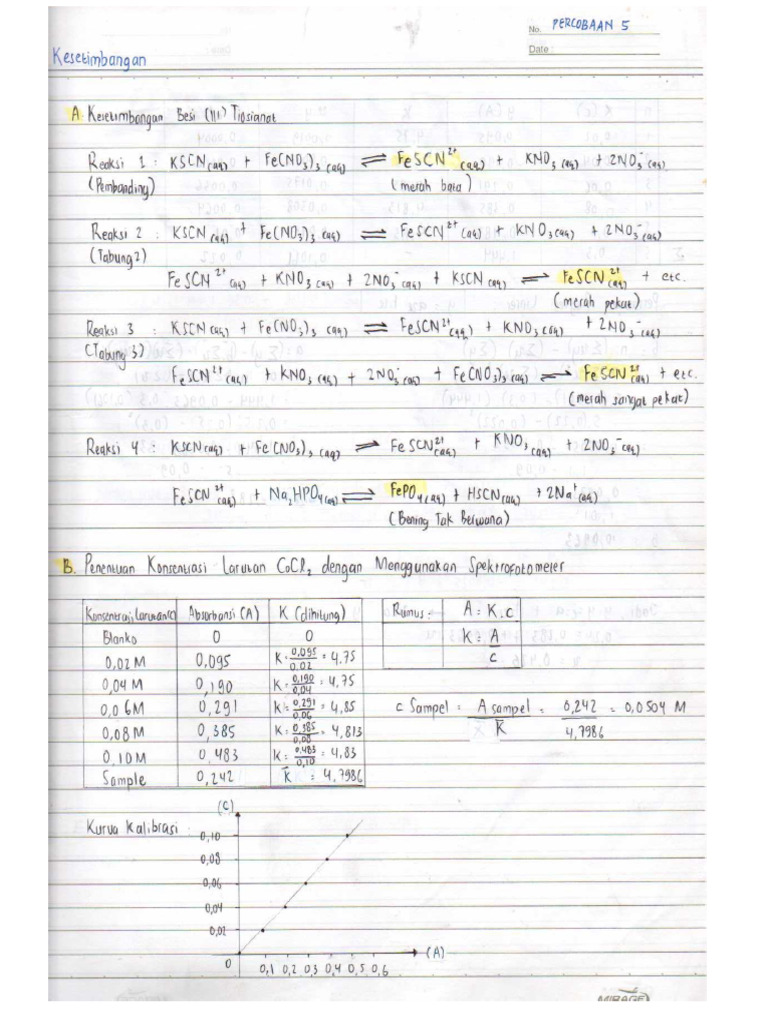 No. PERCOBAAN 5
Date :
Kesetimbangan
A. Kesetimbangan Besi (III) Tiosianat
Reaksi 1 : KSCN(aq) + Fe(NO₃)₃ (aq) ⇌ FeSCN²⁺(aq) + KNO₃(aq) + 2NO₃⁻(aq)
(Pembanding) (merah bata)
Reaksi 2 : KSCN(aq) + Fe(NO₃)₃ (aq) ⇌ FeSCN²⁺(aq) + KNO₃(aq) + 2NO₃⁻(aq)
(Tabung 2)
FeSCN²⁺(aq) + KNO₃(aq) + 2NO₃⁻(aq) + KSCN(aq) ⇌ FeSCN²⁺(aq) + etc.
(merah pekat)
Reaksi 3 : KSCN(aq) + Fe(NO₃)₃ (aq) ⇌ FeSCN²⁺(aq) + KNO₃(aq) + 2NO₃⁻(aq)
(Tabung 3)
FeSCN²⁺(aq) + KNO₃(aq) + 2NO₃⁻(aq) + Fe(NO₃)₃(aq) ⇌ FeSCN²⁺(aq) + etc.
(merah sangat pekat)
Reaksi 4 : KSCN(aq) + Fe(NO₃)₃(aq) ⇌ FeSCN²⁺(aq) + KNO₃(aq) + 2NO₃⁻(aq)
FeSCN²⁺(aq) + Na₂HPO₄(aq) ⇌ FePO₄(aq) + HSCN(aq) + 2Na⁺(aq)
(Bening Tak Berwana)
B. Penentuan Konsentrasi Larutan CoCl₂ dengan Menggunakan Spektrofotometer
Konsentrasi Larutan (c) Absorbansi (A) K (dihitung)
Blanko 0 0
0,02 M 0,095 K = 0,095/0,02 = 4,75
0,04 M 0,190 K = 0,190/0,04 = 4,75
0,06 M 0,291 K = 0,291/0,06 = 4,85
0,08 M 0,385 K = 0,385/0,08 = 4,813
0,10 M 0,483 K = 0,483/0,10 = 4,83
Sample 0,242 K̄ = 4,7986
Rumus : A = K . c
K = A/c
c Sampel = A sampel/K̄ = 0,242/4,7986 = 0,0504 M
Kurva Kalibrasi
(C)
0,10
0,08
0,06
0,04
0,02
0
0,1 0,2 0,3 0,4 0,5 0,6
(A)
MIRAGE